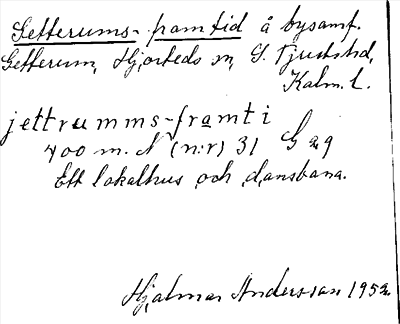 Getterums-framtid å bysamf.
Getterum, Hjorteds sn, S. Tjusts hd,
Kalm. l.
jettrumms-framti
700 m. N (n:r) 31 G 29
Ett lokalhus och dansbana.
Hjalmar Andersson 1952